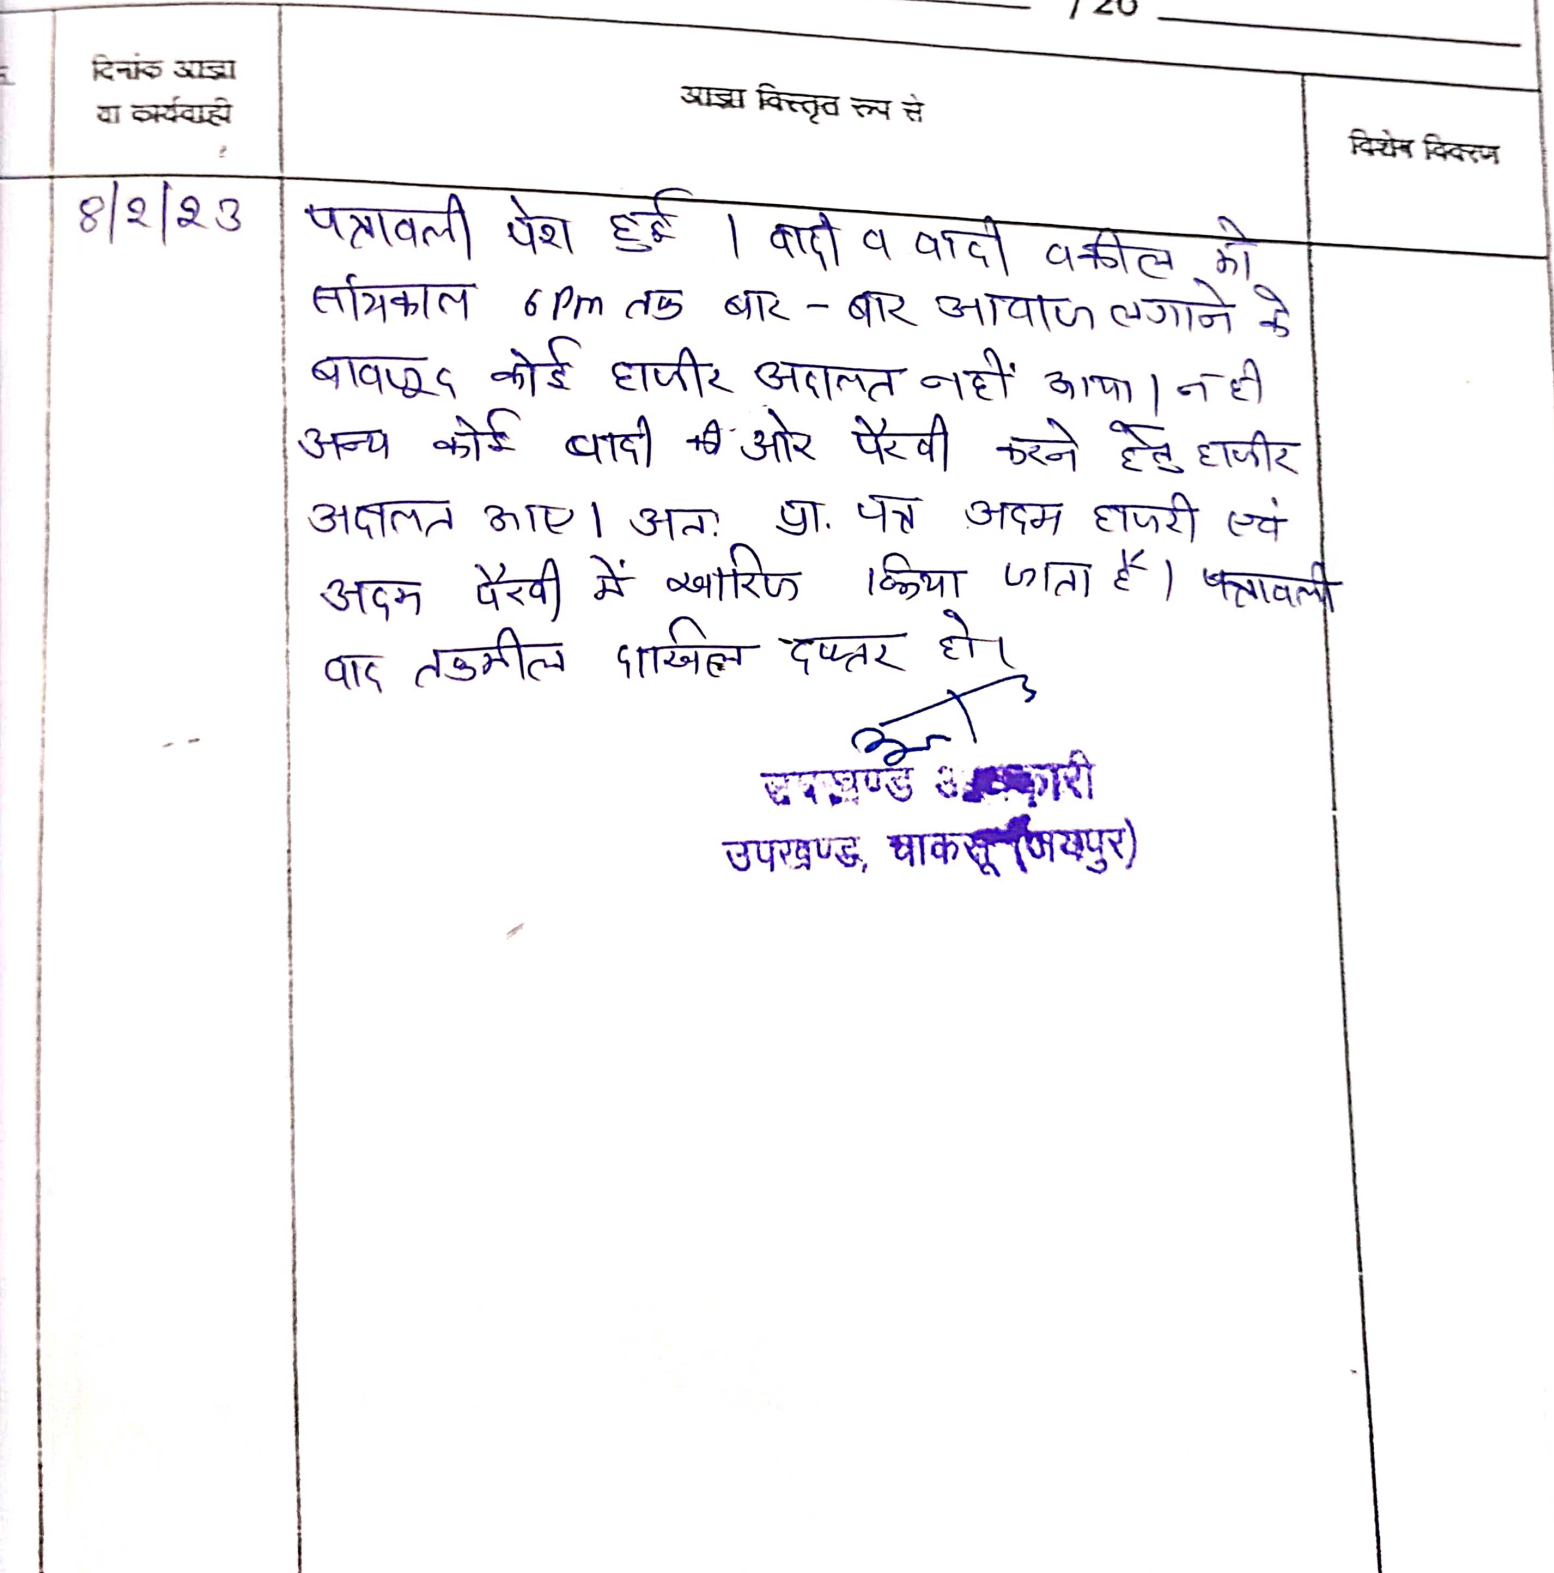 / 20
दिनांक आज्ञा
या कार्यवाही
आज्ञा विस्तृत रूप से
विशेष विवरण
8/2/23
पत्रावली पेश हुई । वादी व वादी वकील को
सांयकाल 6 Pm तक बार - बार आवाज लगाने के
बावजूद कोई हाजीर अदालत नहीं आया । न ही
अन्य कोई वादी की ओर पैरवी करने हेतु हाजीर
अदालत आए । अतः प्रा. पत्र अदम हाजरी एवं
अदम पैरवी में खारिज किया जाता है । पत्रावली
वाद तकमील दाखिल दफ्तर हो ।
उपखण्ड
उपखण्ड, चाकसू (जयपुर)